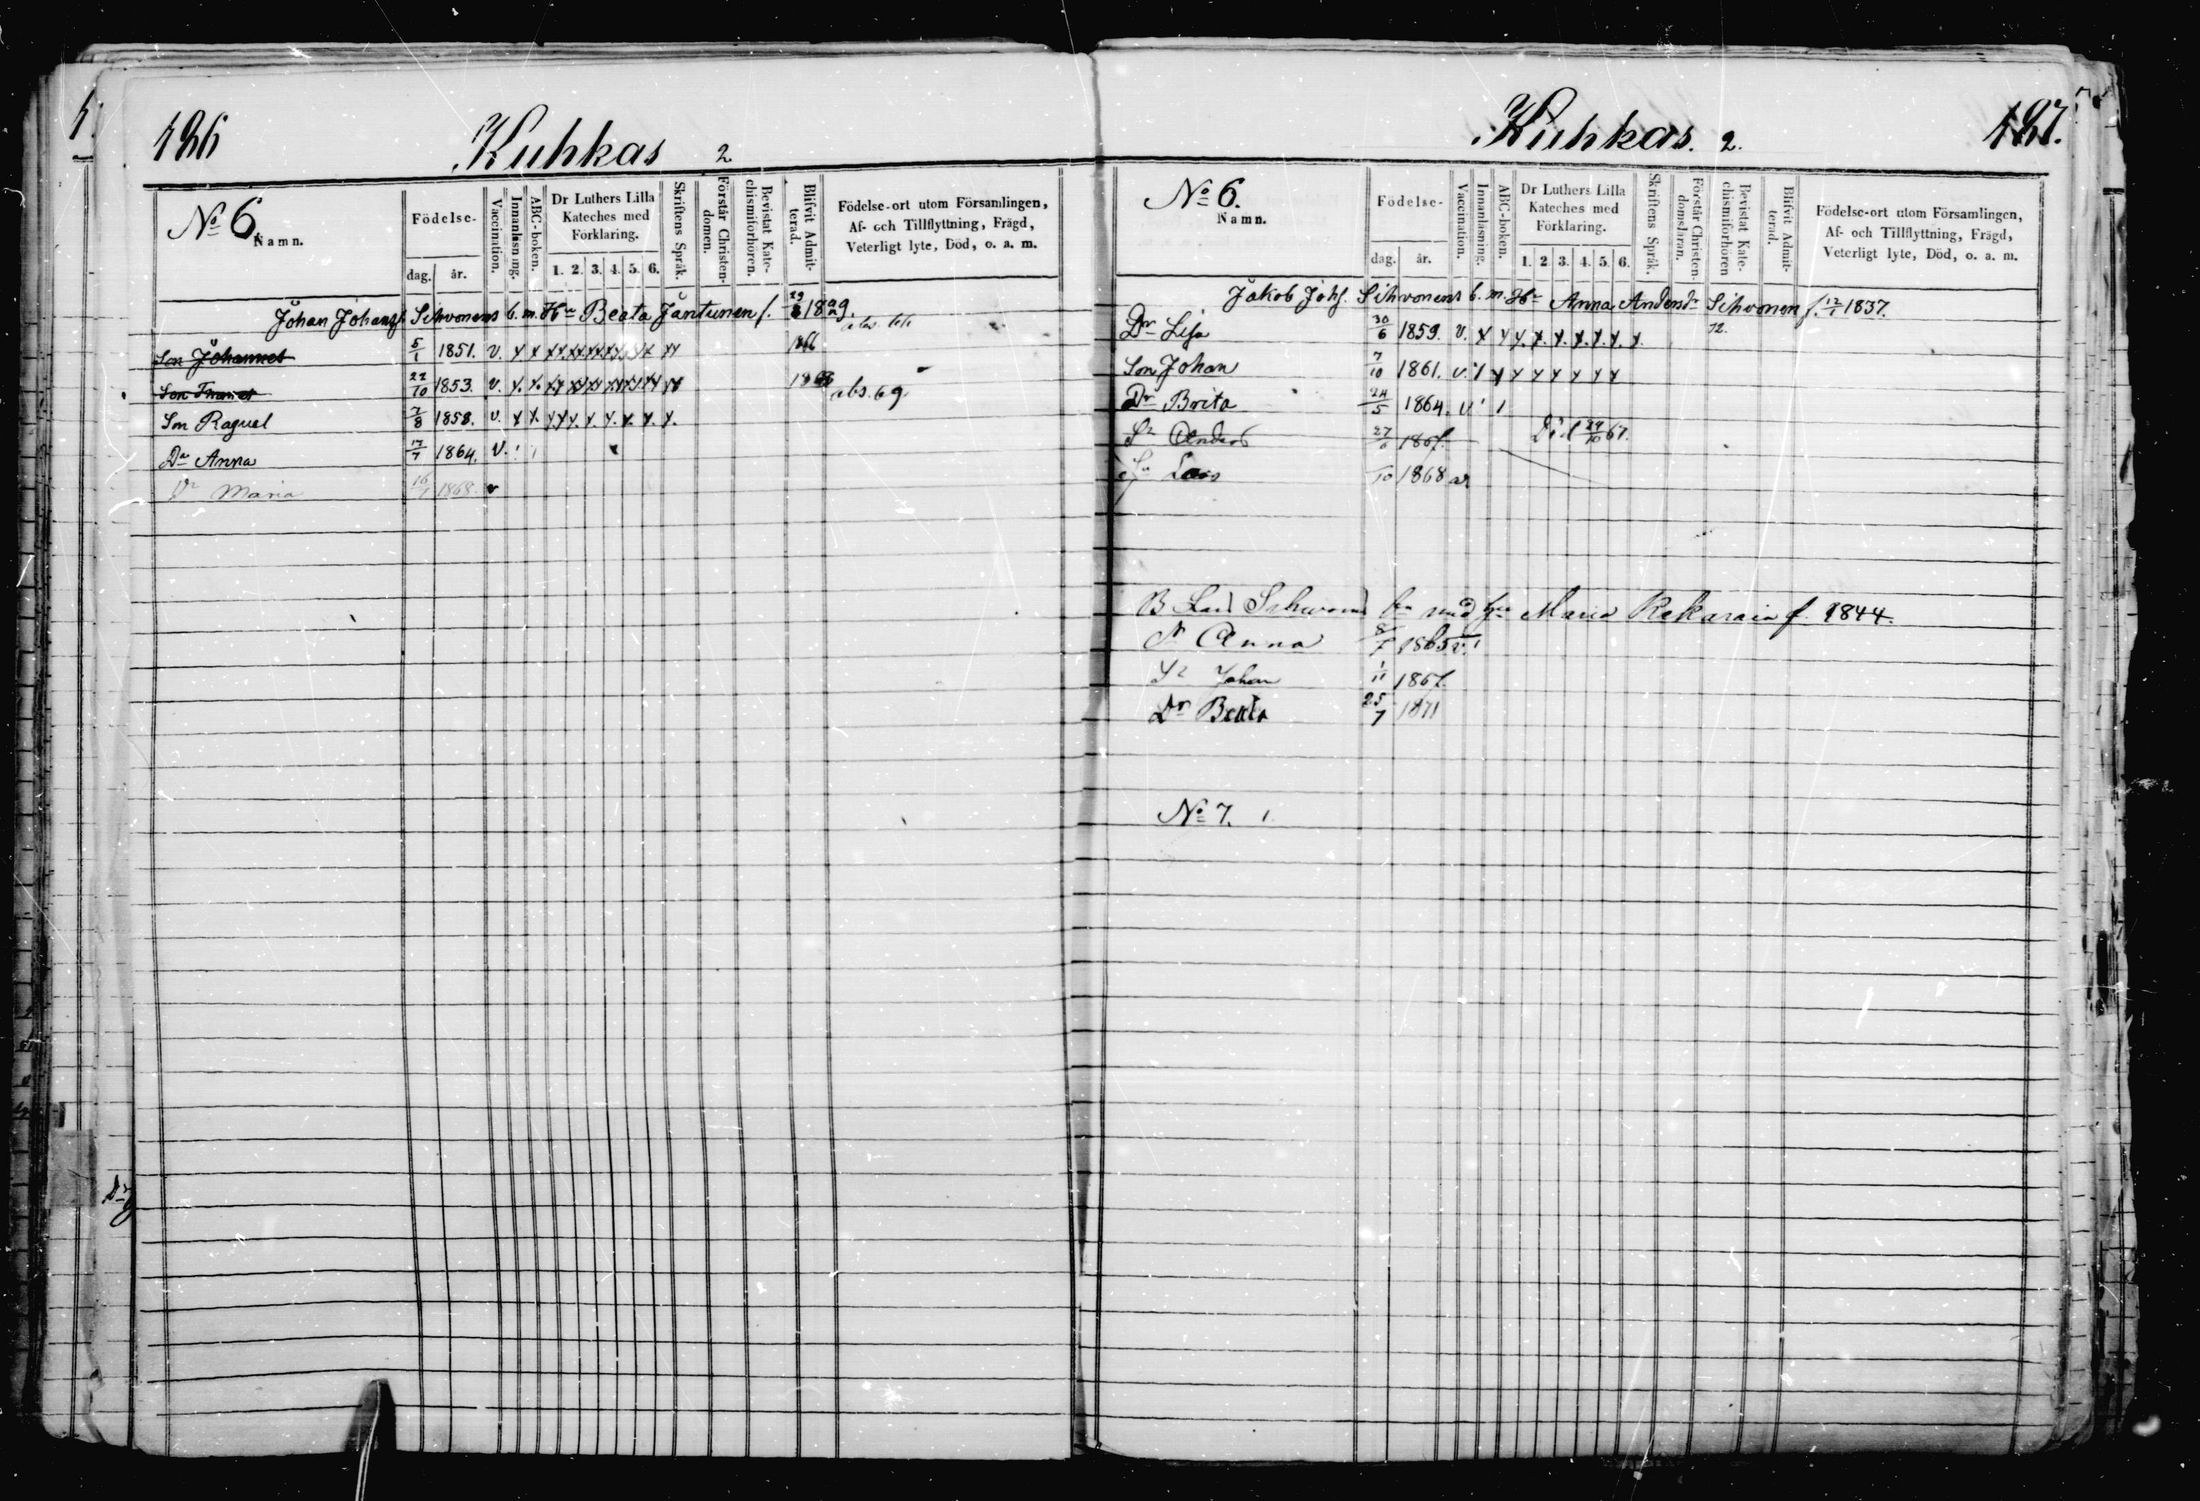 186
Kuhkas 2
No 6.
Namn.
Födelse-
dag. år.
Vaccination.
Innanläsning.
ABC-boken.
Dr Luthers Lilla Kateches med Förklaring.
1. 2. 3. 4. 5. 6.
Skriftens Språk.
Förstår Christen-domen.
Bevistat Kate-chismiförhören.
Blifvit Admit-terad.
Födelse-ort utom Församlingen,
Af- och Tillflyttning, Frägd,
Veterligt lyte, Död, o. a. m.
Johan Johansf Sihvonens b. m. Hu Beata Jäntunen f.
Son Johannes 5/1 1851. v. x x 1866
Son 22/10 1853. v. x. x. abs. 69
Son Raguel 7/8 1858. v. x x.
Dr Anna 17/7 1864. v.
Dr Maria 16/1 1868. v
Kuhkas. 2. 187.
No 6.
Namn.
Födelse-
dag. år.
Vaccination.
Innanläsning.
ABC-boken.
Dr Luthers Lilla Kateches med Förklaring.
1. 2. 3. 4. 5. 6.
Skriftens Språk.
Förstår Christen-domsläran.
Bevistat Kate-chismiförhören
Blifvit Admit-terad.
Födelse-ort utom Församlingen,
Af- och Tillflyttning, Frägd,
Veterligt lyte, Död, o. a. m.
Jakob Johf. Sihvonens b. m. Hu Anna Andersdr Sihvonen f. 12/1 1837.
Dr Lisa 30/6 1859. v. x x x. x. x. x. x. x. x 72.
Son Johan 7/10 1861. v. x x x x x x x x
Dr Brita 24/5 1864. v
Sn Anders 27/6 1867. Död 29/10 67.
Sn Lars /10 1868 v
B Lars Sihvonens bn med hu Maria f. 1844.
Dr Anna 8/7 1865 v.
Sn Johan 1/11 1867.
Dr Beata 25/7 1871
No 7.